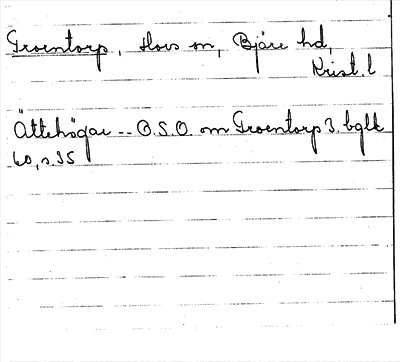 Troentorp, Hovs sn, Bjäre hd,
Krist. l
Ättehögar -- O.S.O. om Troentorp 3. bglk
60, s. 35